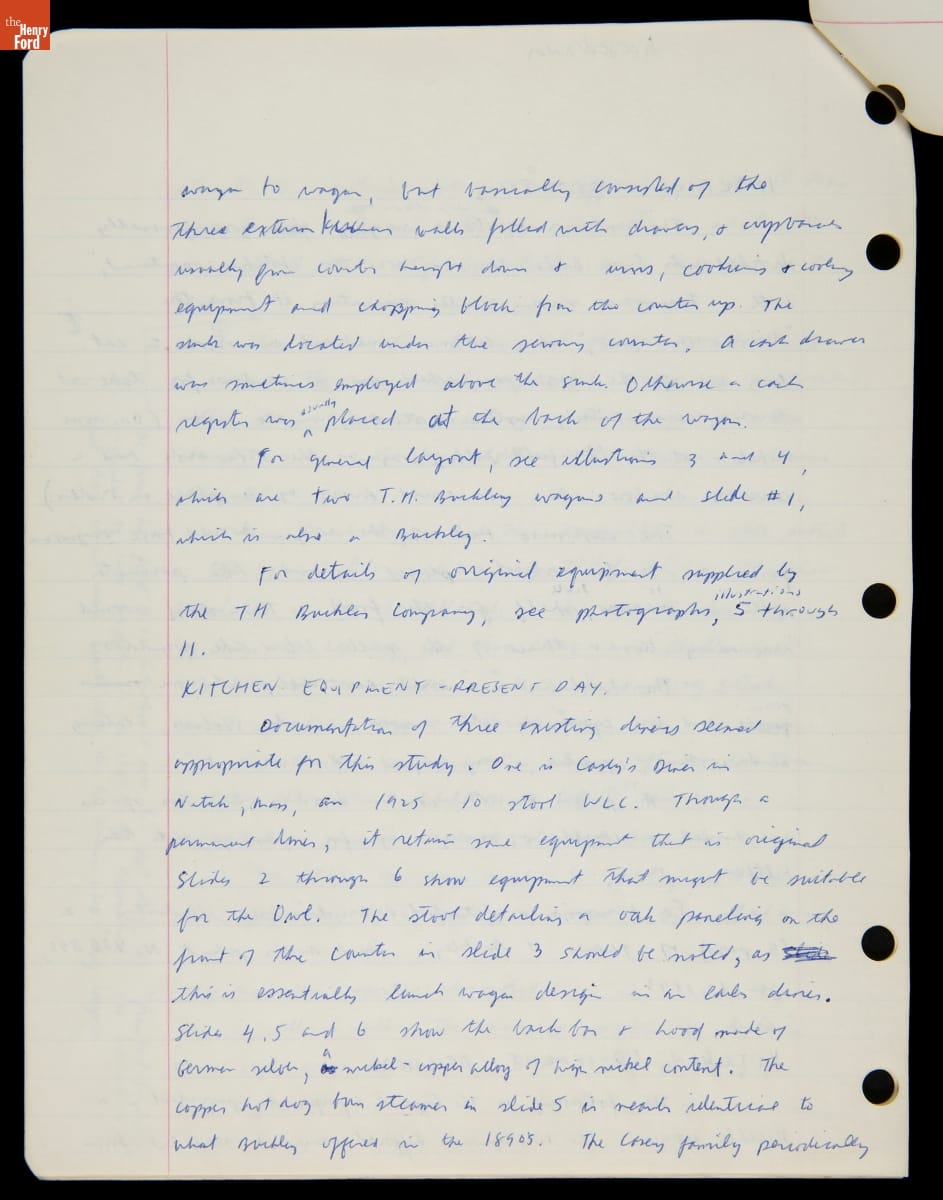 the
Henry
Ford
wagon to wagon, but basically consisted of the
three exterior walls filled with drawers, & cupboards
usually from counter height down & urns, cooking & cooling
equipment and chopping block from the counter up. The
sink was located under the serving counter. A cash drawer
was sometimes employed above the sink. Otherwise a cash
register was usually placed at the back of the wagon.
For general layout, see illustrations 3 and 4,
which are two T.H. Buckley wagons and slide #1,
which is also a Buckley.
For details of original equipment supplied by
the TH Buckley Company, see photographs, illustrations 5 through
11.
KITCHEN EQUIPMENT - PRESENT DAY.
Documentation of three existing diners seemed
appropriate for this study. One is Casey's Diner in
Natick, Mass, an 1925 10 stool WLC. Though a
permanent diner, it retains some equipment that is original
Slides 2 through 6 show equipment that might be suitable
for the Owl. The stool detailing & oak paneling on the
front of the counter in slide 3 should be noted, as
this is essentially lunch wagon design in an early diner.
Slides 4, 5 and 6 show the back bar & hood made of
German silver, a nickel-copper alloy of high nickel content. The
copper hot dog bun steamer in slide 5 is nearly identical to
what Buckley offered in the 1890s. The Casey family periodically